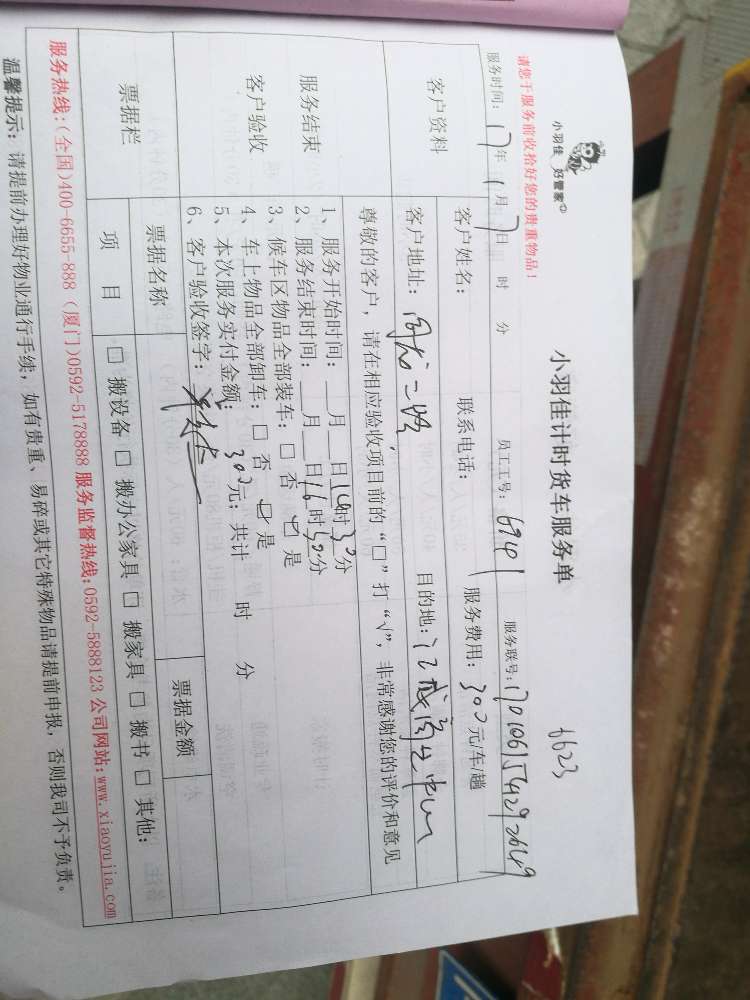 小羽佳 好管家
小羽佳计时货车服务单
6623
请您于服务前收拾好您的贵重物品！
服务时间：17年 11月 7日 时 分 员工工号：6941 服务联号：
客户资料
客户姓名： 联系电话： 服务费用：300元/车/趟
客户地址： 目的地：
尊敬的客户，请在相应验收项目前的“□”打“√”，非常感谢您的评价和意见
服务结束
客户验收
1、服务开始时间：__月__日14时30分
2、服务结束时间：__月__日16时30分
3、候车区物品全部装车：□ 否 ☑ 是
4、车上物品全部卸车：□ 否 ☑ 是
5、本次服务实付金额：300元；共计 时 分
6、客户验收签字：
票据栏
票据名称 票据金额
项 目 □ 搬设备 □ 搬办公家具 □ 搬家具 □ 搬书 □ 其他：
服务热线：(全国)400-6655-888 (厦门)0592-5178888 服务监督热线：0592-5888123 公司网站：www.xiaoyujia.com
温馨提示：请提前办理好物业通行手续，如有贵重、易碎或其它特殊物品请提前申报，否则我司不予负责。